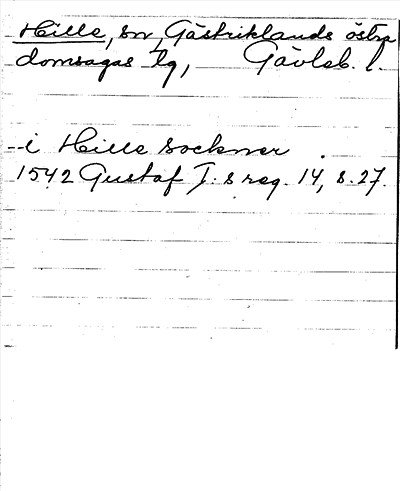 Hille, sn, Gästriklands östra
domsagas tg, Gävleb. l.
i Hille sockner
1542 Gustaf I:s reg. 14, s. 27.